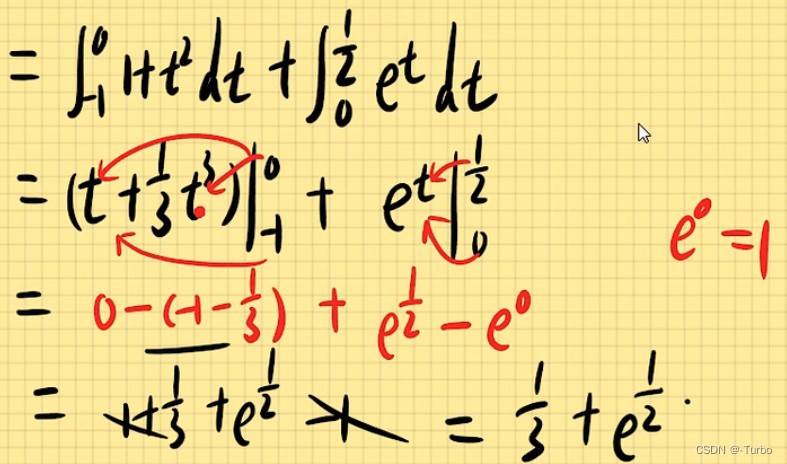 = ∫₋₁⁰ 1+t² dt + ∫₀^{1/2} e^t dt
= (t + 1/3 t³)|₋₁⁰ + e^t|₀^{1/2}
e⁰ = 1
= 0 - (-1 - 1/3) + e^{1/2} - e⁰
= 1 + 1/3 + e^{1/2} - 1 = 1/3 + e^{1/2}.
CSDN @-Turbo